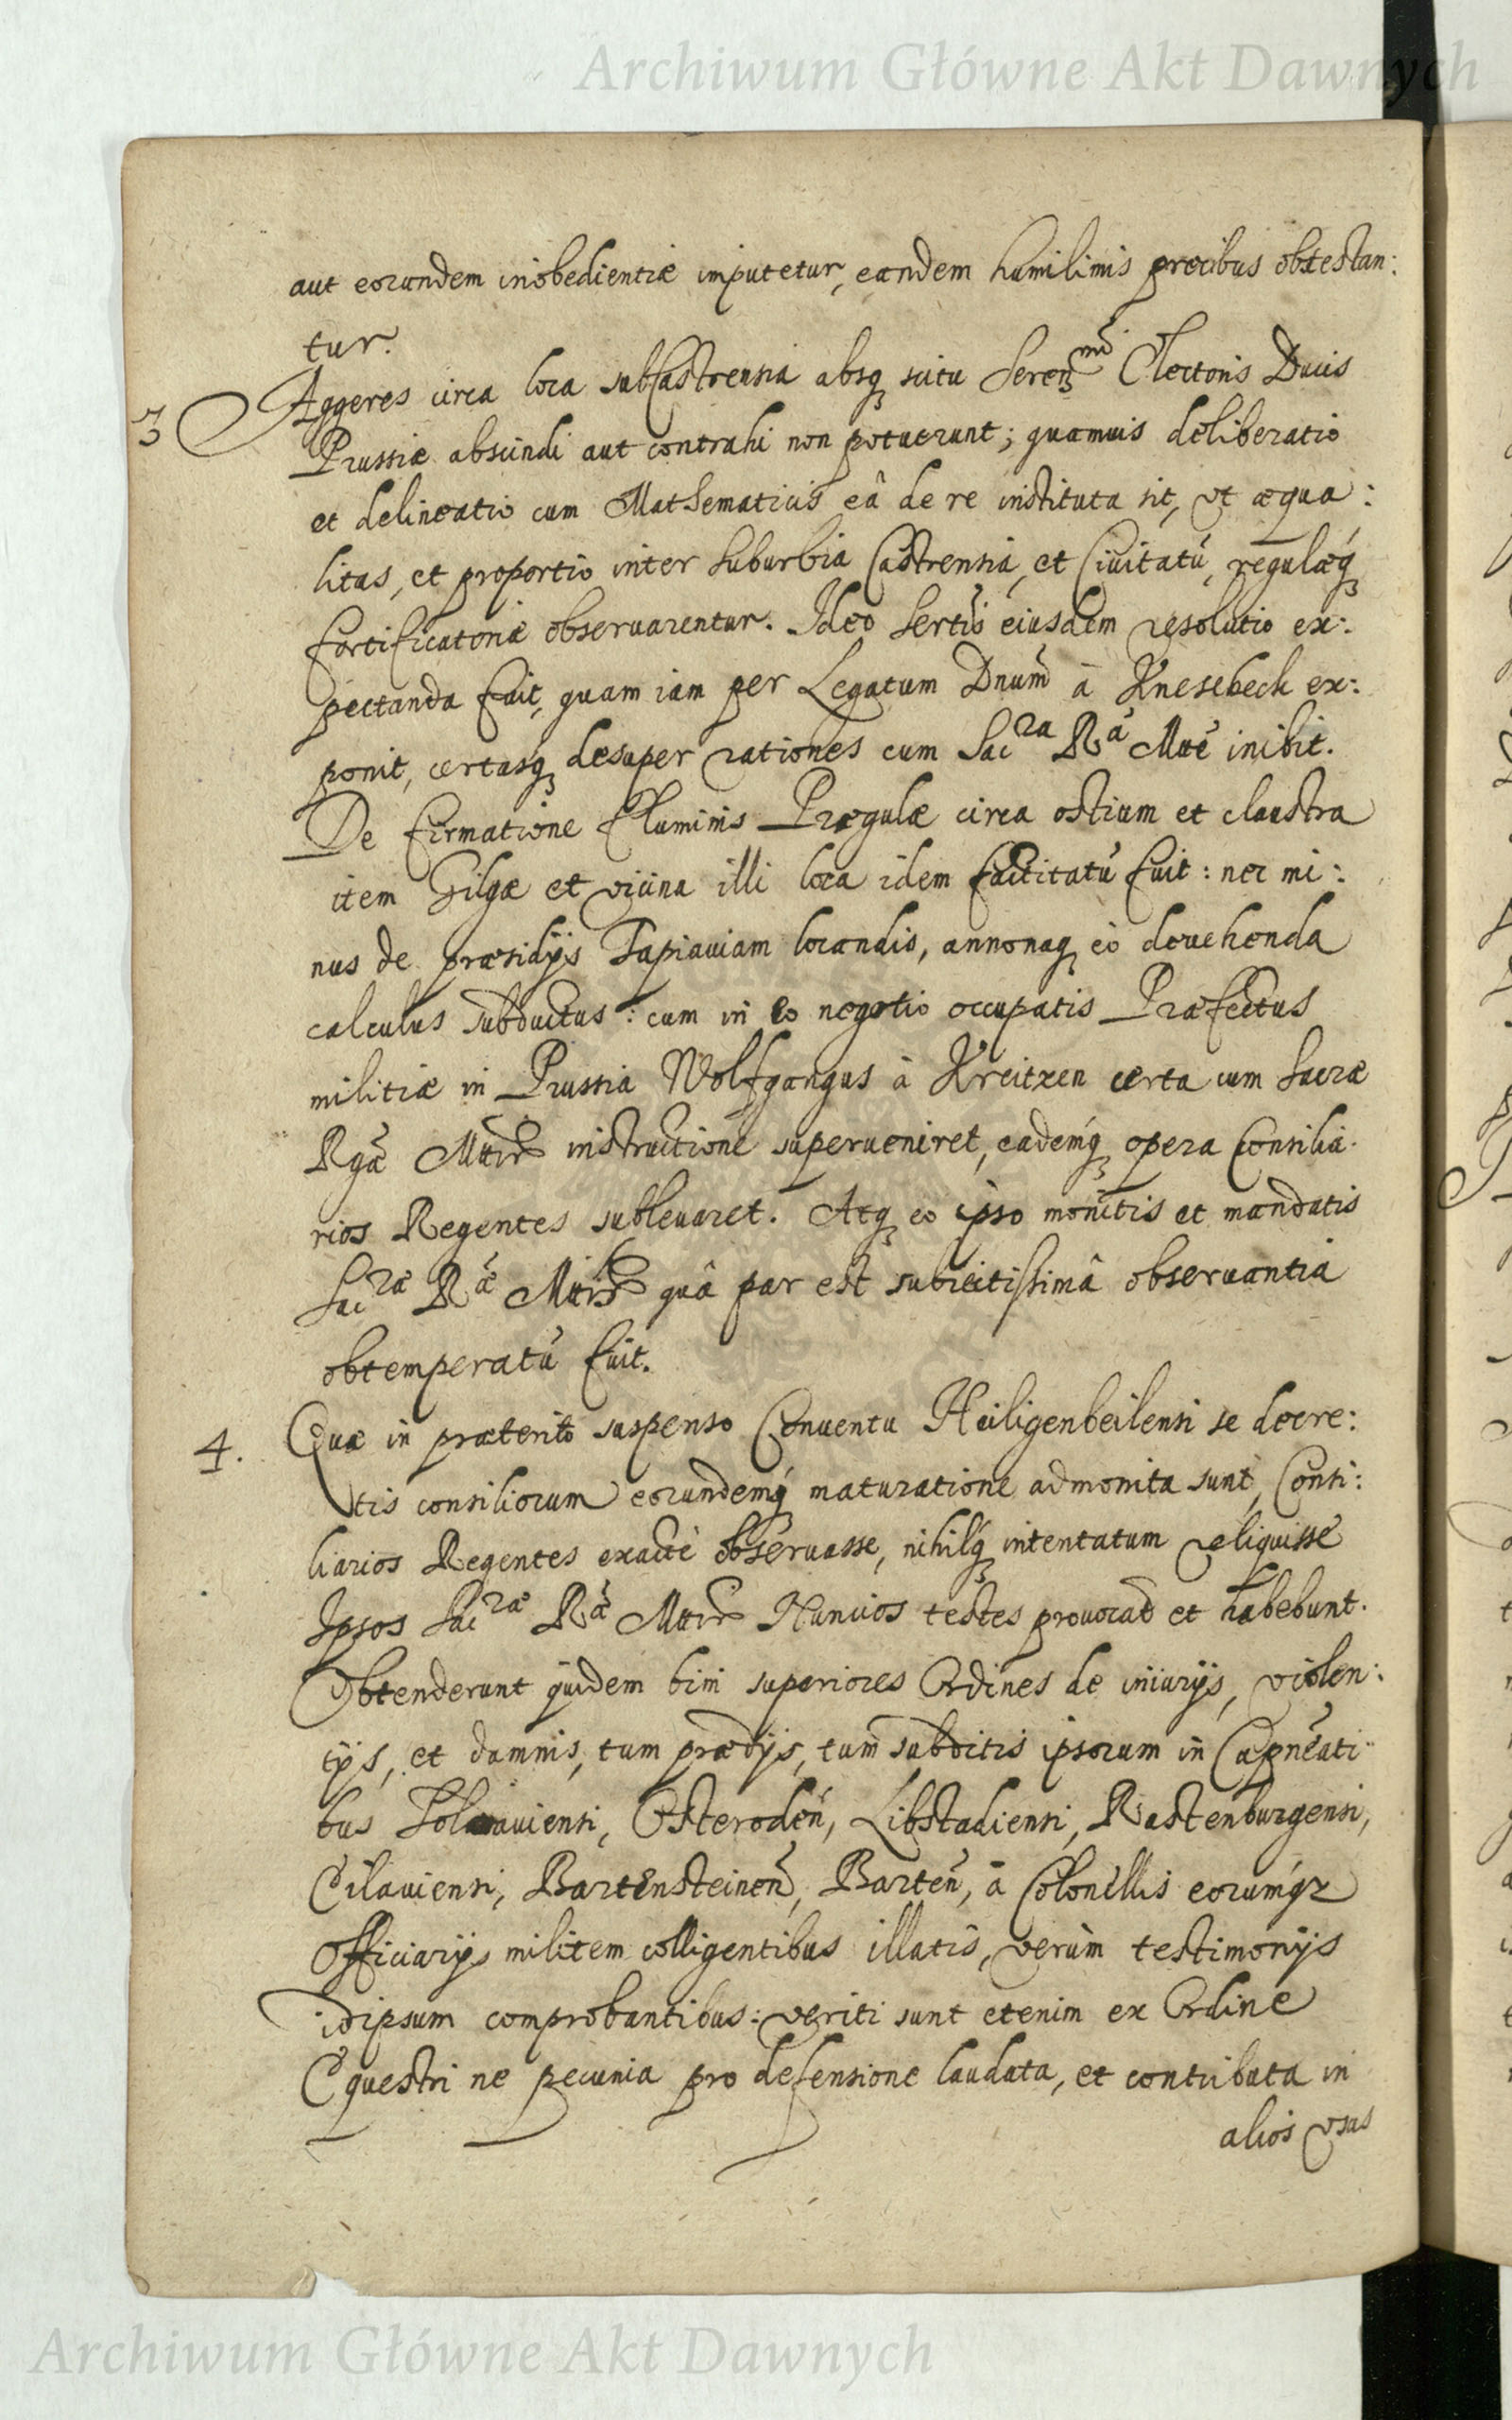 Archiwum Główne Akt Dawnych
aut eorundem inobedientiæ imputetur, eandem humilimis precibus obtestan:
tur.
3 Aggeres circa loca subCastrensia absq scitu Seren^mi Electoris Ducis
Prussiæ abscindi aut contrahi non potuerunt; quamuis deliberatio
et delineatio cum Mathematicis eâ de re instituta sit, vt æqua:
litas, et proportio inter suburbia Castrensia, et Ciuitatũ, regulæq́
fortificatoriæ obseruarentur. Ideo Sertis eiusdem resolutio ex:
pectanda fuit, quam iam per Legatum Dnum̃ à Knesebeck ex:
ponit, certasq́ desuper rationes cum Sac^ra R^a Mtẽ inibit.
De firmatione Fluminis Prægulæ circa ostium et claustra
item Gilgæ et vicina illi loca idem factitatũ fuit: nec mi:
nus de præsidijs Tapiauiam locandis, annonaq eò deuehenda
calculus subductus: cum in eo negotio occupatis Præfectus
militiæ in Prussia Wolfgangus à Kreitzen certa cum Sacræ
Rgæ Mttis instructione superueniret, eademq́ opera Consilia:
rios Regentes subleuaret. Atq eo ipso monitis et mandatis
Sac^ræ R^æ Mttis quâ par est subiectissimâ obseruantia
obtemperatũ fuit.
4. Quæ in præterito suspenso Conuentu Heiligenbeilensi se decre:
tis consiliorum eorundemq́ maturatione admonita sunt, Consi:
liarios Regentes exactè obseruasse, nihilq́ intentatum reliquisse
Ipsos Sac^ræ R^æ Mttis Nuncios testes prouocaĩt et habebunt.
Obtenderunt quidem bini superiores Ordines de iniurijs, violen:
tijs, et damnis, tum prædijs, tum subditis ipsorum in Capneati:
bus Holauiensi, Osterodeñ, Libstadiensi, Rastenburgensi,
Eilauiensi, Bartensteineñ, Barteñ, à Colonellis eorumq́z
Officiarijs militem colligentibus illatis, verùm testimonijs
idipsum comprobantibus: veriti sunt etenim ex Ordine
Equestri ne pecunia pro defensione laudata, et contributa in
alios vsus
Archiwum Główne Akt Dawnych